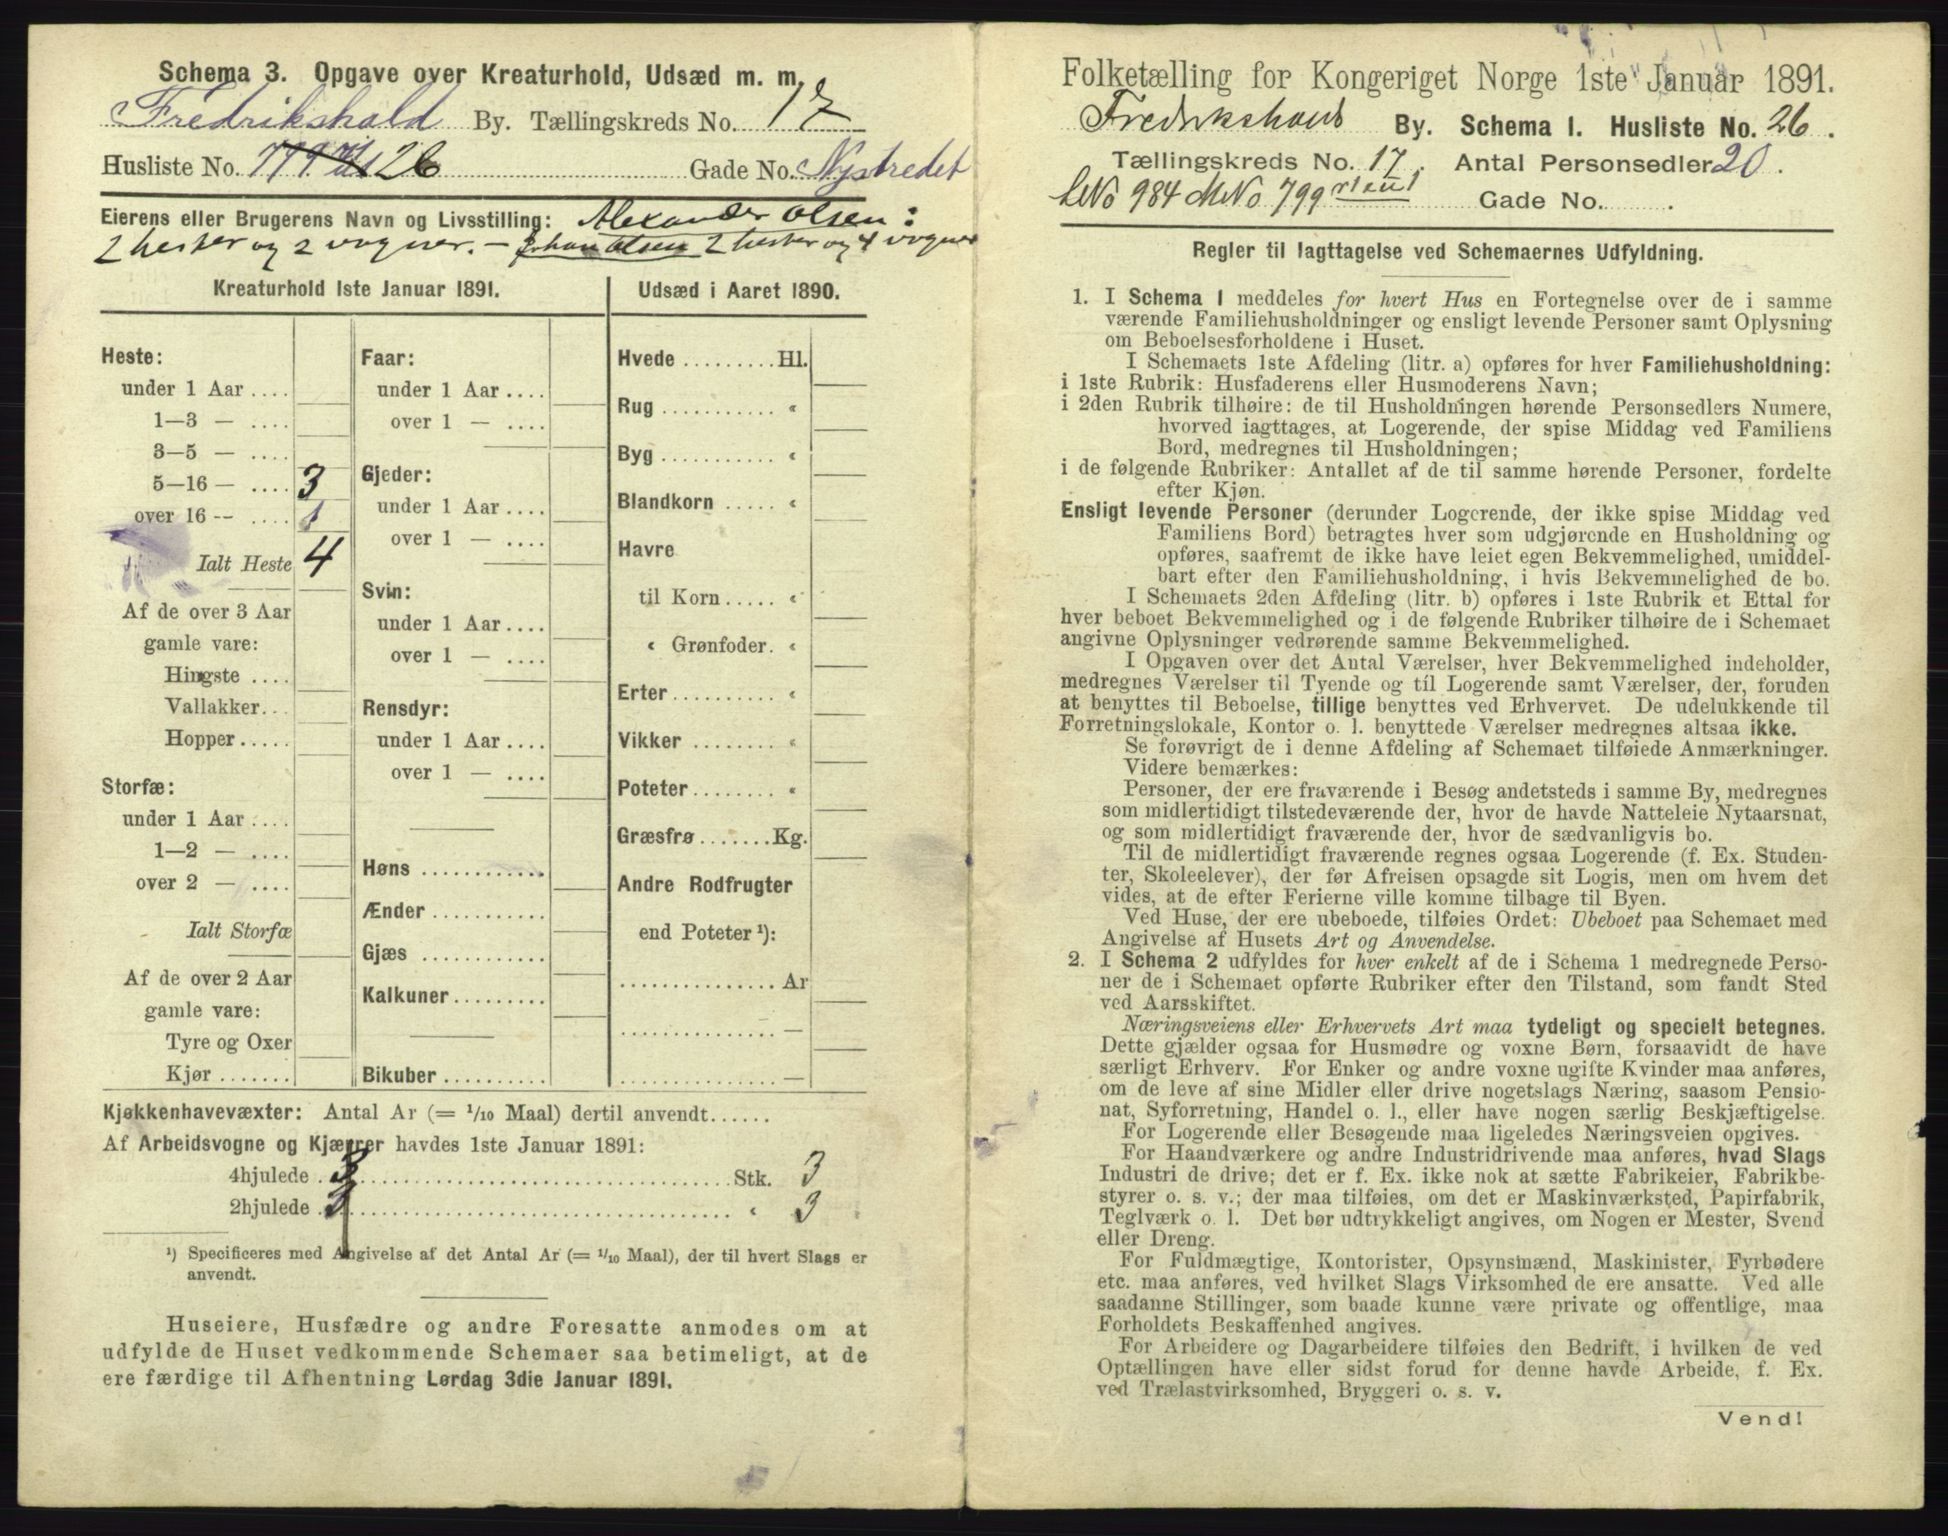 Schema 3. Opgave over Kreaturhold, Udsæd m. m.
Fredrikshald By. Tællingskreds No. 17
Husliste No. 26 Gade No. Nystredet
Eierens eller Brugerens Navn og Livsstilling: Alexander Olsen:
2 hester og 2 vogner. – Johan Olsen 2 hester og 4 vogner
Kreaturhold 1ste Januar 1891.
Heste:
under 1 Aar ....
1—3 — ....
3—5 — ....
5—16 — .... 3
over 16 -- .... 1
Ialt Heste 4
Af de over 3 Aar
gamle vare:
Hingste ....
Vallakker...
Hopper.....
Storfæ:
under 1 Aar ....
1—2 — ....
over 2 — ....
Ialt Storfæ
Af de over 2 Aar
gamle vare:
Tyre og Oxer
Kjør .......
Faar:
under 1 Aar ....
over 1 — ....
Gjeder:
under 1 Aar ....
over 1 — ....
Svin:
under 1 Aar ....
over 1 — ....
Rensdyr:
under 1 Aar ....
over 1 — ....
Høns ............
Ænder ..........
Gjæs ............
Kalkuner.........
Bikuber ..........
Udsæd i Aaret 1890.
Hvede .........Hl.
Rug ........... «
Byg ........... «
Blandkorn ..... «
Havre
til Korn ..... «
« Grønfoder. «
Erter .......... «
Vikker ......... «
Poteter ........ «
Græsfrø .......Kg.
Andre Rodfrugter
end Poteter ¹):
............... Ar
............... —
............... —
Kjøkkenhavevæxter: Antal Ar (= 1/10 Maal) dertil anvendt......
Af Arbeidsvogne og Kjærrer havdes 1ste Januar 1891:
4hjulede ........ Stk. 3
2hjulede ........ « 3
¹) Specificeres med Angivelse af det Antal Ar (= 1/10 Maal), der til hvert Slags er
anvendt.
Huseiere, Husfædre og andre Foresatte anmodes om at
udfylde de Huset vedkommende Schemaer saa betimeligt, at de
ere færdige til Afhentning Lørdag 3die Januar 1891.
Folketælling for Kongeriget Norge 1ste Januar 1891.
Fredrikshald By. Schema I. Husliste No. 26.
Tællingskreds No. 17. Antal Personsedler 20.
LNo 984 MNo 799 Gade No. .
Regler til Iagttagelse ved Schemaernes Udfyldning.
1. I Schema 1 meddeles for hvert Hus en Fortegnelse over de i samme
værende Familiehusholdninger og ensligt levende Personer samt Oplysning
om Beboelsesforholdene i Huset.
I Schemaets 1ste Afdeling (litr. a) opføres for hver Familiehusholdning:
i 1ste Rubrik: Husfaderens eller Husmoderens Navn;
i 2den Rubrik tilhøire: de til Husholdningen hørende Personsedlers Numere,
hvorved iagttages, at Logerende, der spise Middag ved Familiens
Bord, medregnes til Husholdningen;
i de følgende Rubriker: Antallet af de til samme hørende Personer, fordelte
efter Kjøn.
Ensligt levende Personer (derunder Logerende, der ikke spise Middag ved
Familiens Bord) betragtes hver som udgjørende en Husholdning og
opføres, saafremt de ikke have leiet egen Bekvemmelighed, umiddel-
bart efter den Familiehusholdning, i hvis Bekvemmelighed de bo.
I Schemaets 2den Afdeling (litr. b) opføres i 1ste Rubrik et Ettal for
hver beboet Bekvemmelighed og i de følgende Rubriker tilhøire de i Schemaet
angivne Oplysninger vedrørende samme Bekvemmelighed.
I Opgaven over det Antal Værelser, hver Bekvemmelighed indeholder,
medregnes Værelser til Tyende og til Logerende samt Værelser, der, foruden
at benyttes til Beboelse, tillige benyttes ved Erhvervet. De udelukkende til
Forretningslokale, Kontor o. l. benyttede Værelser medregnes altsaa ikke.
Se forøvrigt de i denne Afdeling af Schemaet tilføiede Anmærkninger.
Videre bemærkes:
Personer, der ere fraværende i Besøg andetsteds i samme By, medregnes
som midlertidigt tilstedeværende der, hvor de havde Natteleie Nytaarsnat,
og som midlertidigt fraværende der, hvor de sædvanligvis bo.
Til de midlertidigt fraværende regnes ogsaa Logerende (f. Ex. Studen-
ter, Skoleelever), der før Afreisen opsagde sit Logis, men om hvem det
vides, at de efter Ferierne ville komme tilbage til Byen.
Ved Huse, der ere ubeboede, tilføies Ordet: Ubeboet paa Schemaet med
Angivelse af Husets Art og Anvendelse.
2. I Schema 2 udfyldes for hver enkelt af de i Schema 1 medregnede Perso-
ner de i Schemaet opførte Rubriker efter den Tilstand, som fandt Sted
ved Aarsskiftet.
Næringsveiens eller Erhvervets Art maa tydeligt og specielt betegnes.
Dette gjælder ogsaa for Husmødre og voxne Børn, forsaavidt de have
særligt Erhverv. For Enker og andre voxne ugifte Kvinder maa anføres,
om de leve af sine Midler eller drive nogetslags Næring, saasom Pensio-
nat, Syforretning, Handel o. l., eller have nogen særlig Beskjæftigelse.
For Logerende eller Besøgende maa ligeledes Næringsveien opgives.
For Haandværkere og andre Industridrivende maa anføres, hvad Slags
Industri de drive; det er f. Ex. ikke nok at sætte Fabrikeier, Fabrikbe-
styrer o. s. v.; der maa tilføies, om det er Maskinværksted, Papirfabrik,
Teglværk o. l. Det bør udtrykkeligt angives, om Nogen er Mester, Svend
eller Dreng.
For Fuldmægtige, Kontorister, Opsynsmænd, Maskinister, Fyrbødere
etc. maa anføres, ved hvilket Slags Virksomhed de ere ansatte. Ved alle
saadanne Stillinger, som baade kunne være private og offentlige, maa
Forholdets Beskaffenhed angives.
For Arbeidere og Dagarbeidere tilføies den Bedrift, i hvilken de ved
Optællingen have eller sidst forud for denne havde Arbeide, f. Ex.
ved Trælastvirksomhed, Bryggeri o. s. v.
Vend!